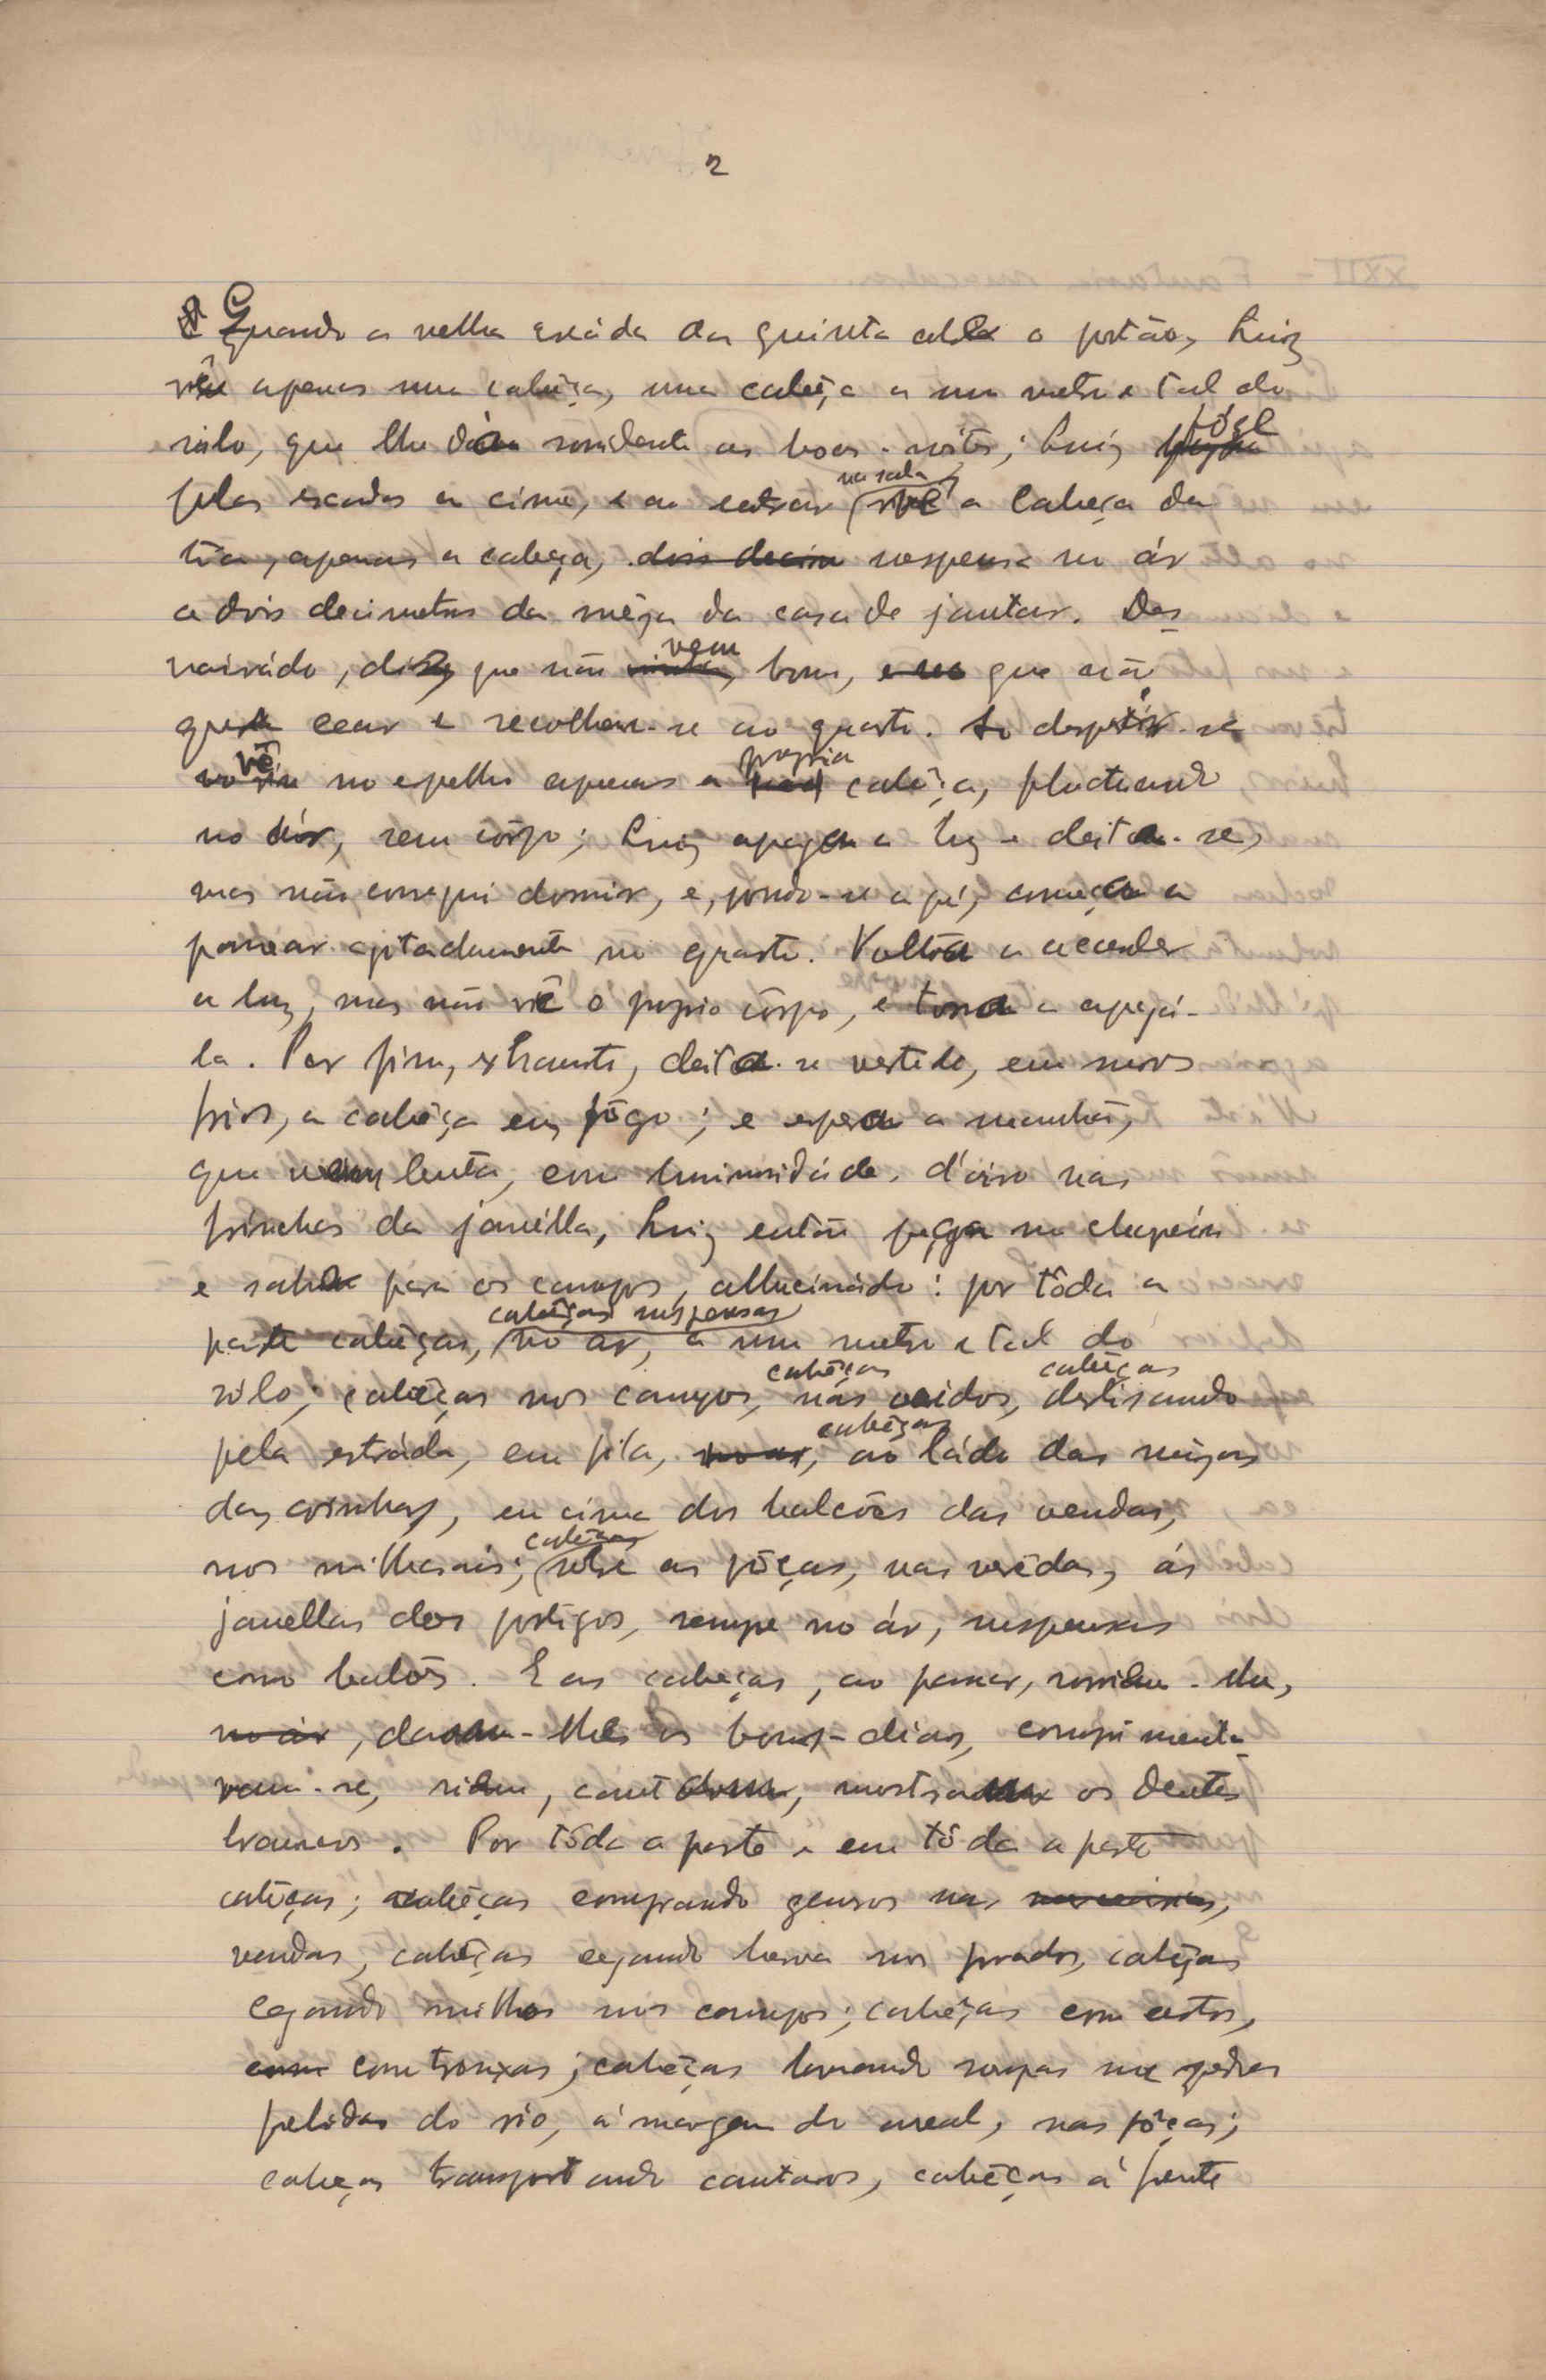 2
Quando a velha criáda da quinta abre o portão, Luiz
vê apenas uma cabêça, uma cabêça a um metro e tal do
sólo, que lhe dá sorridente as boas-noites; Luiz fóge
pelas escadas a cima, e ao entrar na sala vê a cabeça da
tia, apenas a cabeça, dois decim suspensa no ár
a dois decimetros da mêza da casa de jantar. Des
vairádo, diz que não vem bom, que não
quer cear e recolhe-se ao quarto. Ao despir-se
vê no espelho apenas a propria cabêça, fluctuando
no ár, sem côrpo; Luiz apaga a luz e deita-se,
mas não consegue dormir, e, pondo-se a pé, começa a
passear agitadamente no quarto. Volta a accender
a luz, mas não vê o proprio côrpo, e torna a apagá-
la. Por fim, exhausto, deita-se vestido, em suores
frios, a cabêça em fôgo; e espera a manhã,
que vem lenta, com luminosidáde d'oiro nas
frinchas da janélla, Luiz então pega no chapéu
e sahe para os campos, allucinádo: por tôda a
parte cabêças, cabêças suspensas no ar, a um metro e tal do
sólo; cabêças nos campos, cabêças nos eidos, cabêças deslisando
pela estráda, em fila, no ar, cabêças ao ládo das mêzas
das cosinhas, em cima dos balcões das vendas,
nos milharais; cabêças sobre as pôças, nas verêdas, ás
janellas dos postigos, sempre no ár, suspensas
como balões. E as cabeças, ao passar, sorriem-lhe,
no ár, dam-lhe os bons-dias, comprimenta
vam-se, riem, cantam, mostram os dentes
brancos. Por tôda a parte e em tôda a parte
cabêças; cabêças comprando generos nas
vendas, cabêças cegando herva nos prados, cabêças
cegando milhos nos campos; cabêças com cestos,
com com trouxas; cabêças lavando roupas nas pedras
polidas do rio, á margem do areal, nas pôças;
cabeças transportando cantaros, cabêças á frente